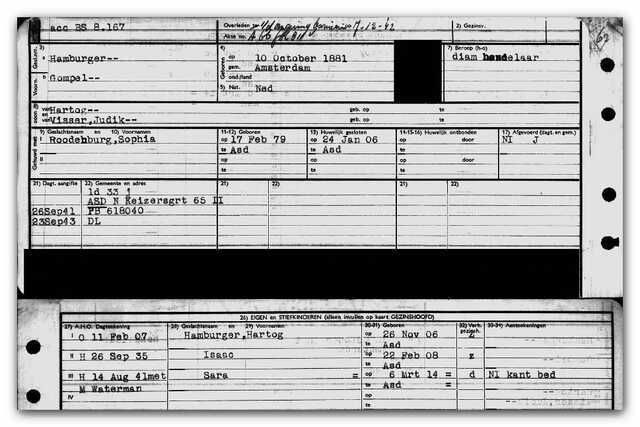 acc BS 8.167
Overleden te
Akte no.
2) Gezinsv.
62
3)
4)
7) Beroep (h-o)
Hamburger--
10 October 1881
diam handelaar
gem. Amsterdam
Gompel--
ond/land
5) Nat. Ned
Hartog-- geb. op te
Visser, Judik-- geb. op te
9) Geslachtsnaam en 10) Voornamen 11-12) Geboren 13) Huwelijk gesloten 14-15-16) Huwelijk ontbonden 17) Afgevoerd (dagt. en gem.)
I Roodenburg,Sophia op 17 Feb 79 op 24 Jan 06 op door NI J
te Asd te Asd te
II op op op door
te te te
21) Dagt. aangifte 22) Gemeente en adres 21) 22) 21) 22)
ld 33 j
ASD N Keizersgrt 65 II
26Sep41 PB 618040
23Sep43 DL
26) EIGEN en STIEFKINDEREN (alleen invullen op kaart GEZINSHOOFD)
27) A.H.O. Dagtekening 28) Geslachtsnaam en 29) Voornamen 30-31) Geboren 32) Verh. 33-34) Aantekeningen
I O 11 Feb 07 Hamburger,Hartog op 26 Nov 06 z
te Asd
II H 26 Sep 35 Isaac op 22 Feb 08 z
te Asd
III H 14 Aug 41met Sara = op 6 Mrt 14 = d NI kant bed
M Waterman te Asd =
IV op
te